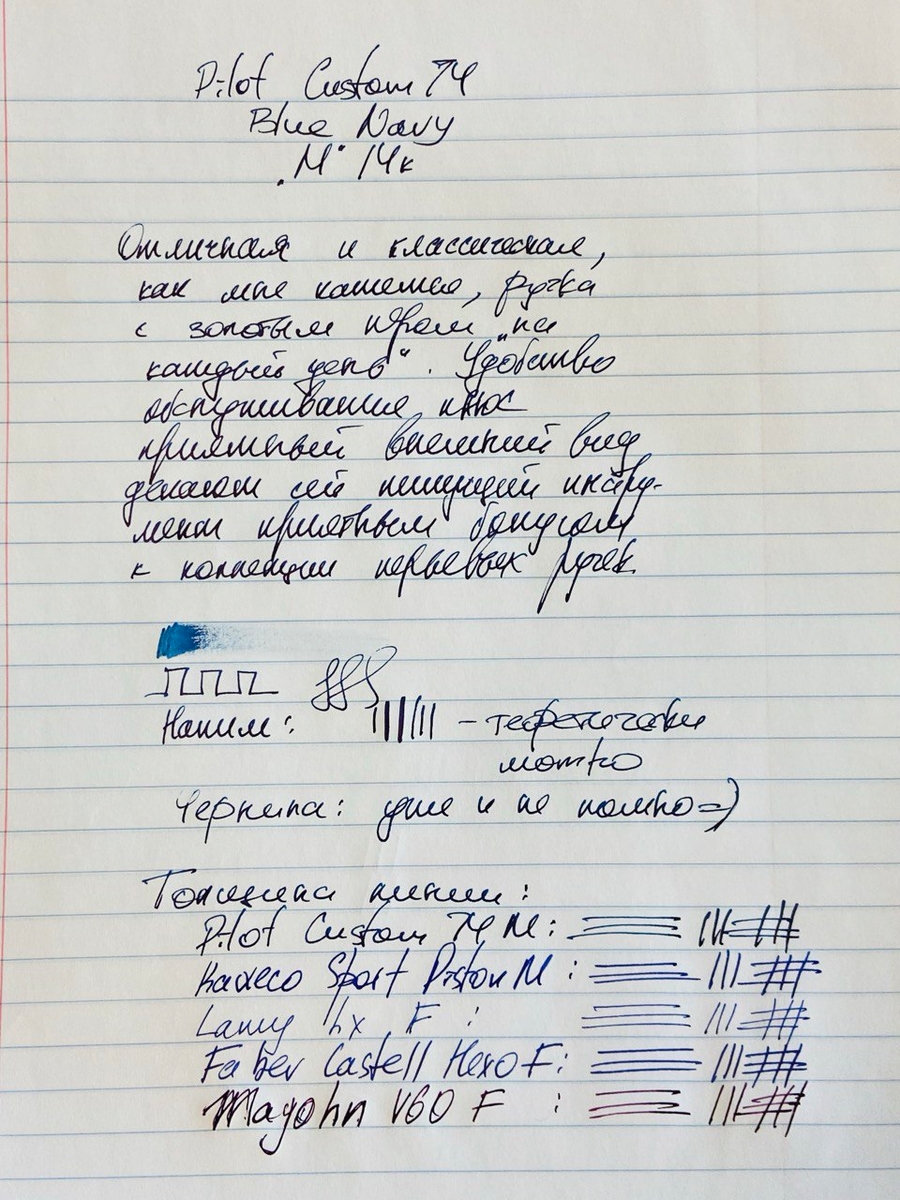 Pilot Custom 74
Blue Navy
"M" 14k
Отличная и классическая,
как мне кажется, ручка
с золотым пером „на
каждый день“. Удобство
обслуживания плюс
приятный внешний вид
делают сей пишущий инстру-
мент приятным бонусом
к коллекции перьевых ручек.
Нажим: - теоретически
можно
Чернила: уже и не помню =)
Толщина линии:
Pilot Custom 74 M:
Kaweco Sport Piston M :
Lamy Lx F :
Faber Castell Hexo F:
Majohn V60 F :